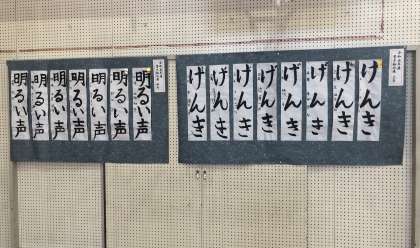 げんき
げんき
げんき
げんき
げんき
げんき
げんき
げんき
明るい声
明るい声
明るい声
明るい声
明るい声
明るい声
明るい声